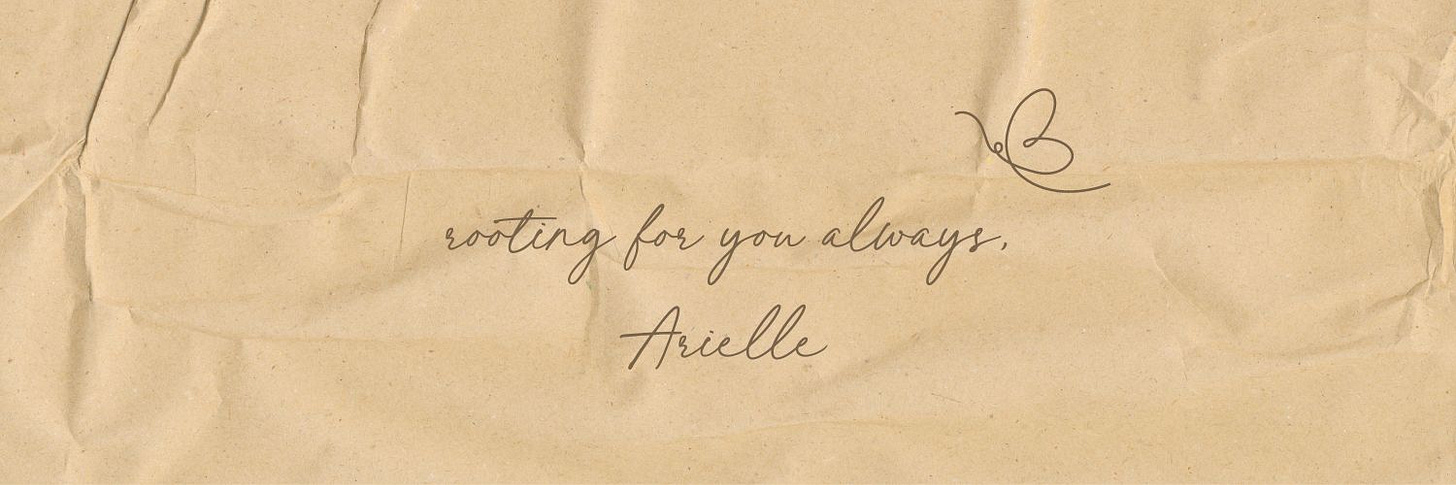 rooting for you always,
Arielle